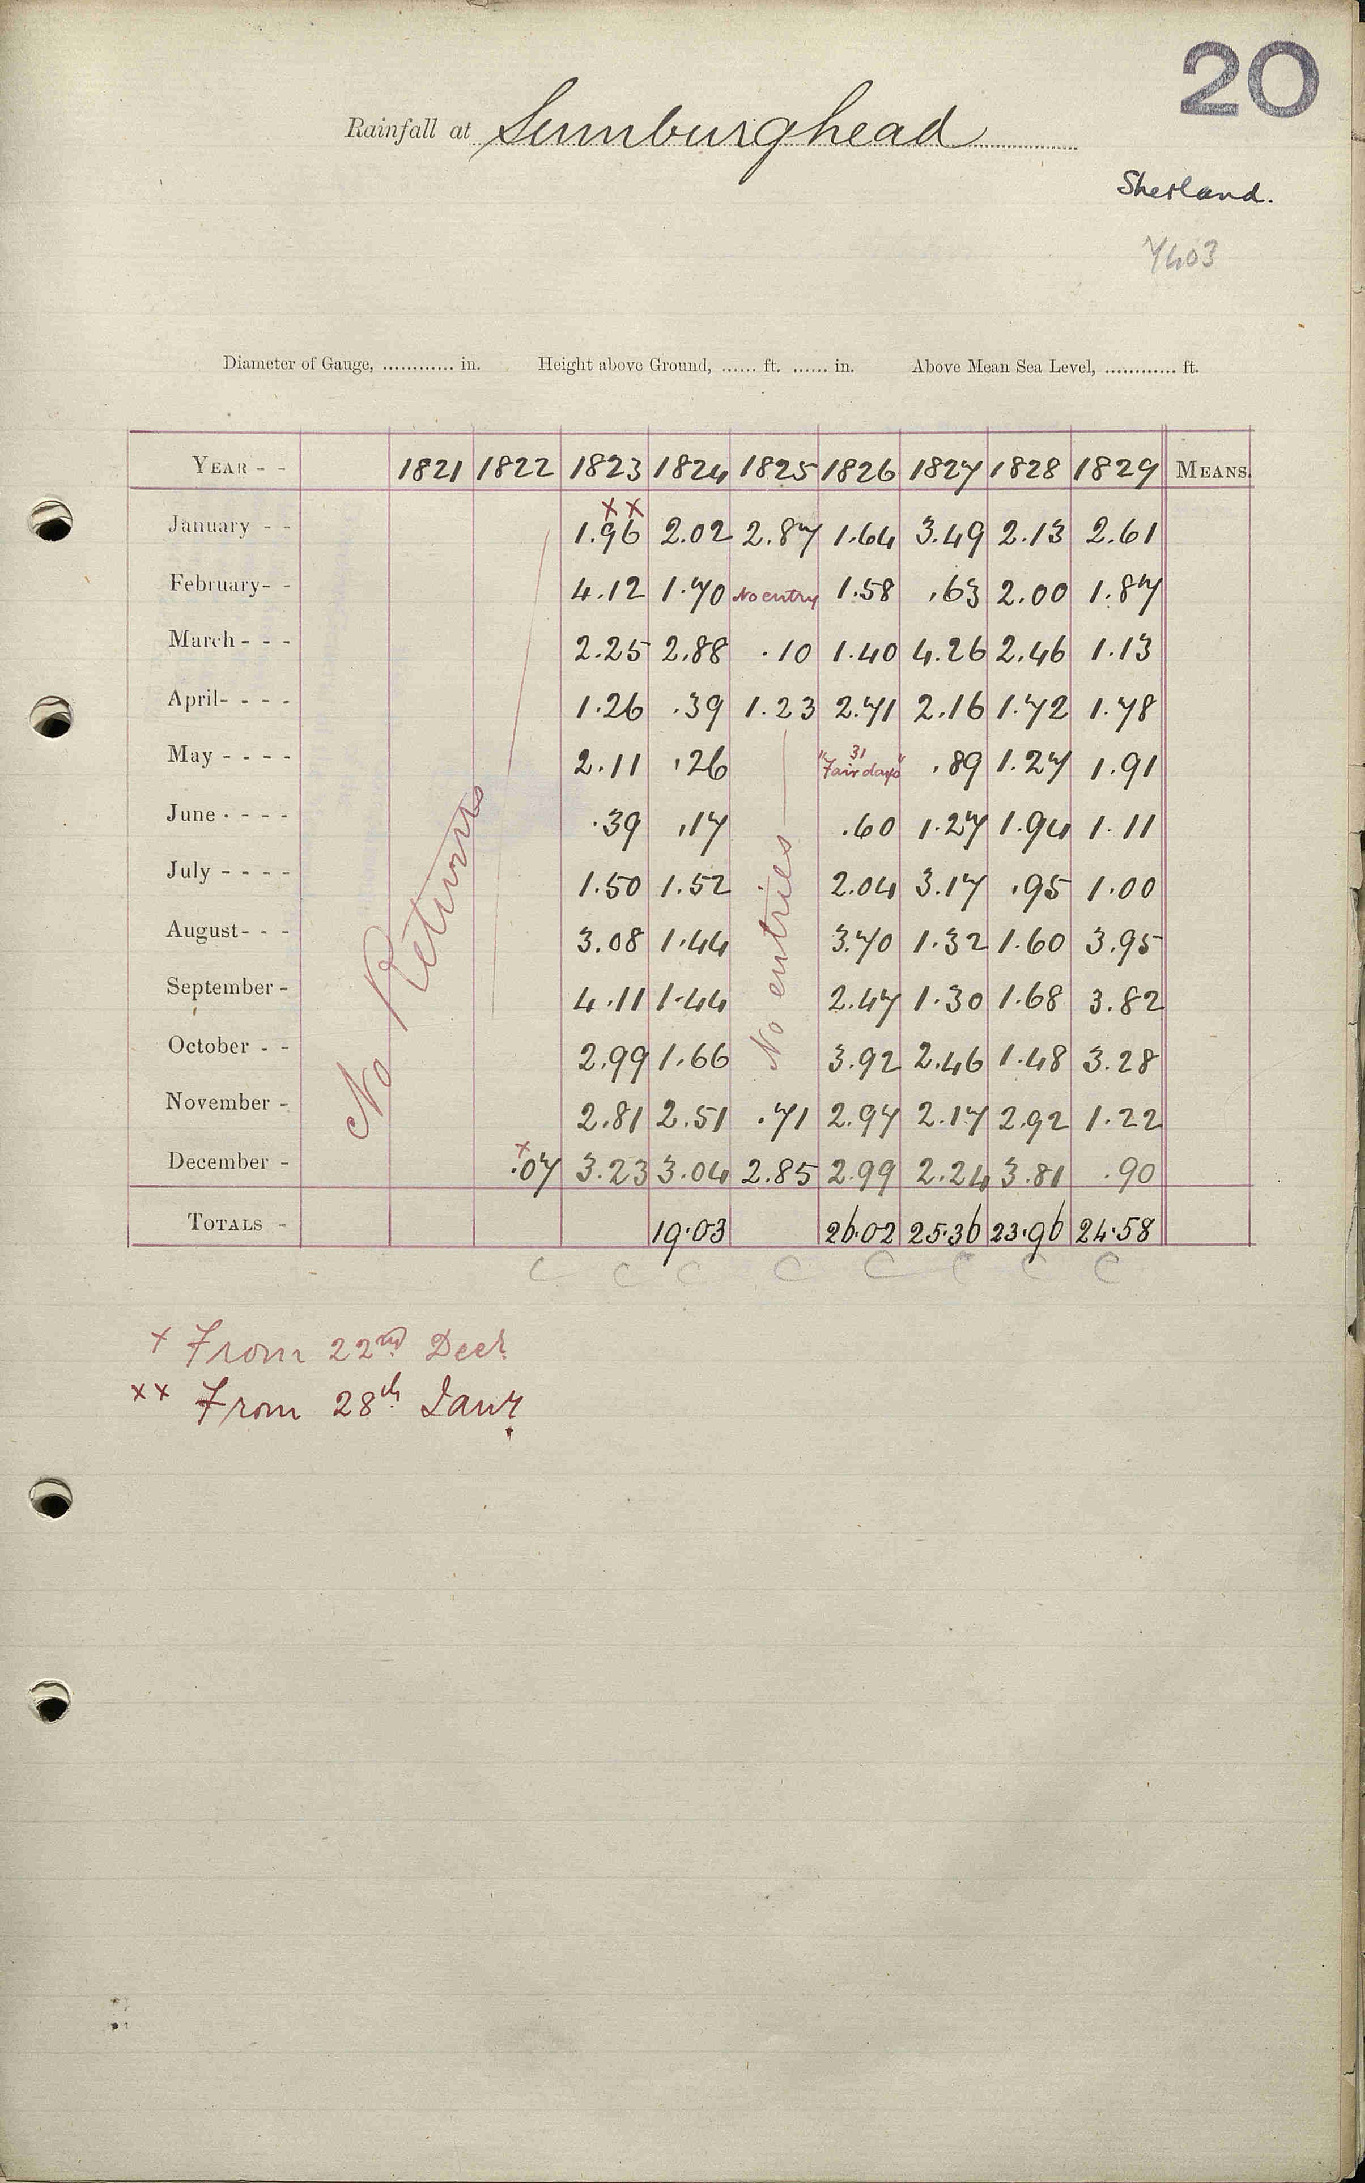 20
Rainfall at Sumburghead
Shetland.
7403
Diameter of Gauge, ............ in. Height above Ground, ...... ft. ...... in. Above Mean Sea Level, ............ ft.
YEAR - - 1821 1822 1823 1824 1825 1826 1827 1828 1829 MEANS.
x x
January - - 1.96 2.02 2.87 1.64 3.49 2.13 2.61
February- - 4.12 1.70 No entry 1.58 .63 2.00 1.87
March - - - 2.25 2.88 .10 1.40 4.26 2.46 1.13
April- - - - 1.26 .39 1.23 2.71 2.16 1.72 1.78
May - - - - 2.11 .26 "31 Fair days" .89 1.27 1.91
June - - - - .39 .17 .60 1.27 1.94 1.11
July - - - - 1.50 1.52 2.04 3.17 .95 1.00
August- - - 3.08 1.44 3.70 1.32 1.60 3.95
September - 4.11 1.44 2.47 1.30 1.68 3.82
October - - 2.99 1.66 3.92 2.46 1.48 3.28
November - 2.81 2.51 .71 2.97 2.17 2.92 1.22
December - x .07 3.23 3.04 2.85 2.99 2.24 3.81 .90
TOTALS - 19.03 26.02 25.36 23.96 24.58
No Returns
No entries
C C C C C C C C
x From 22nd Decr
xx From 28th Jany